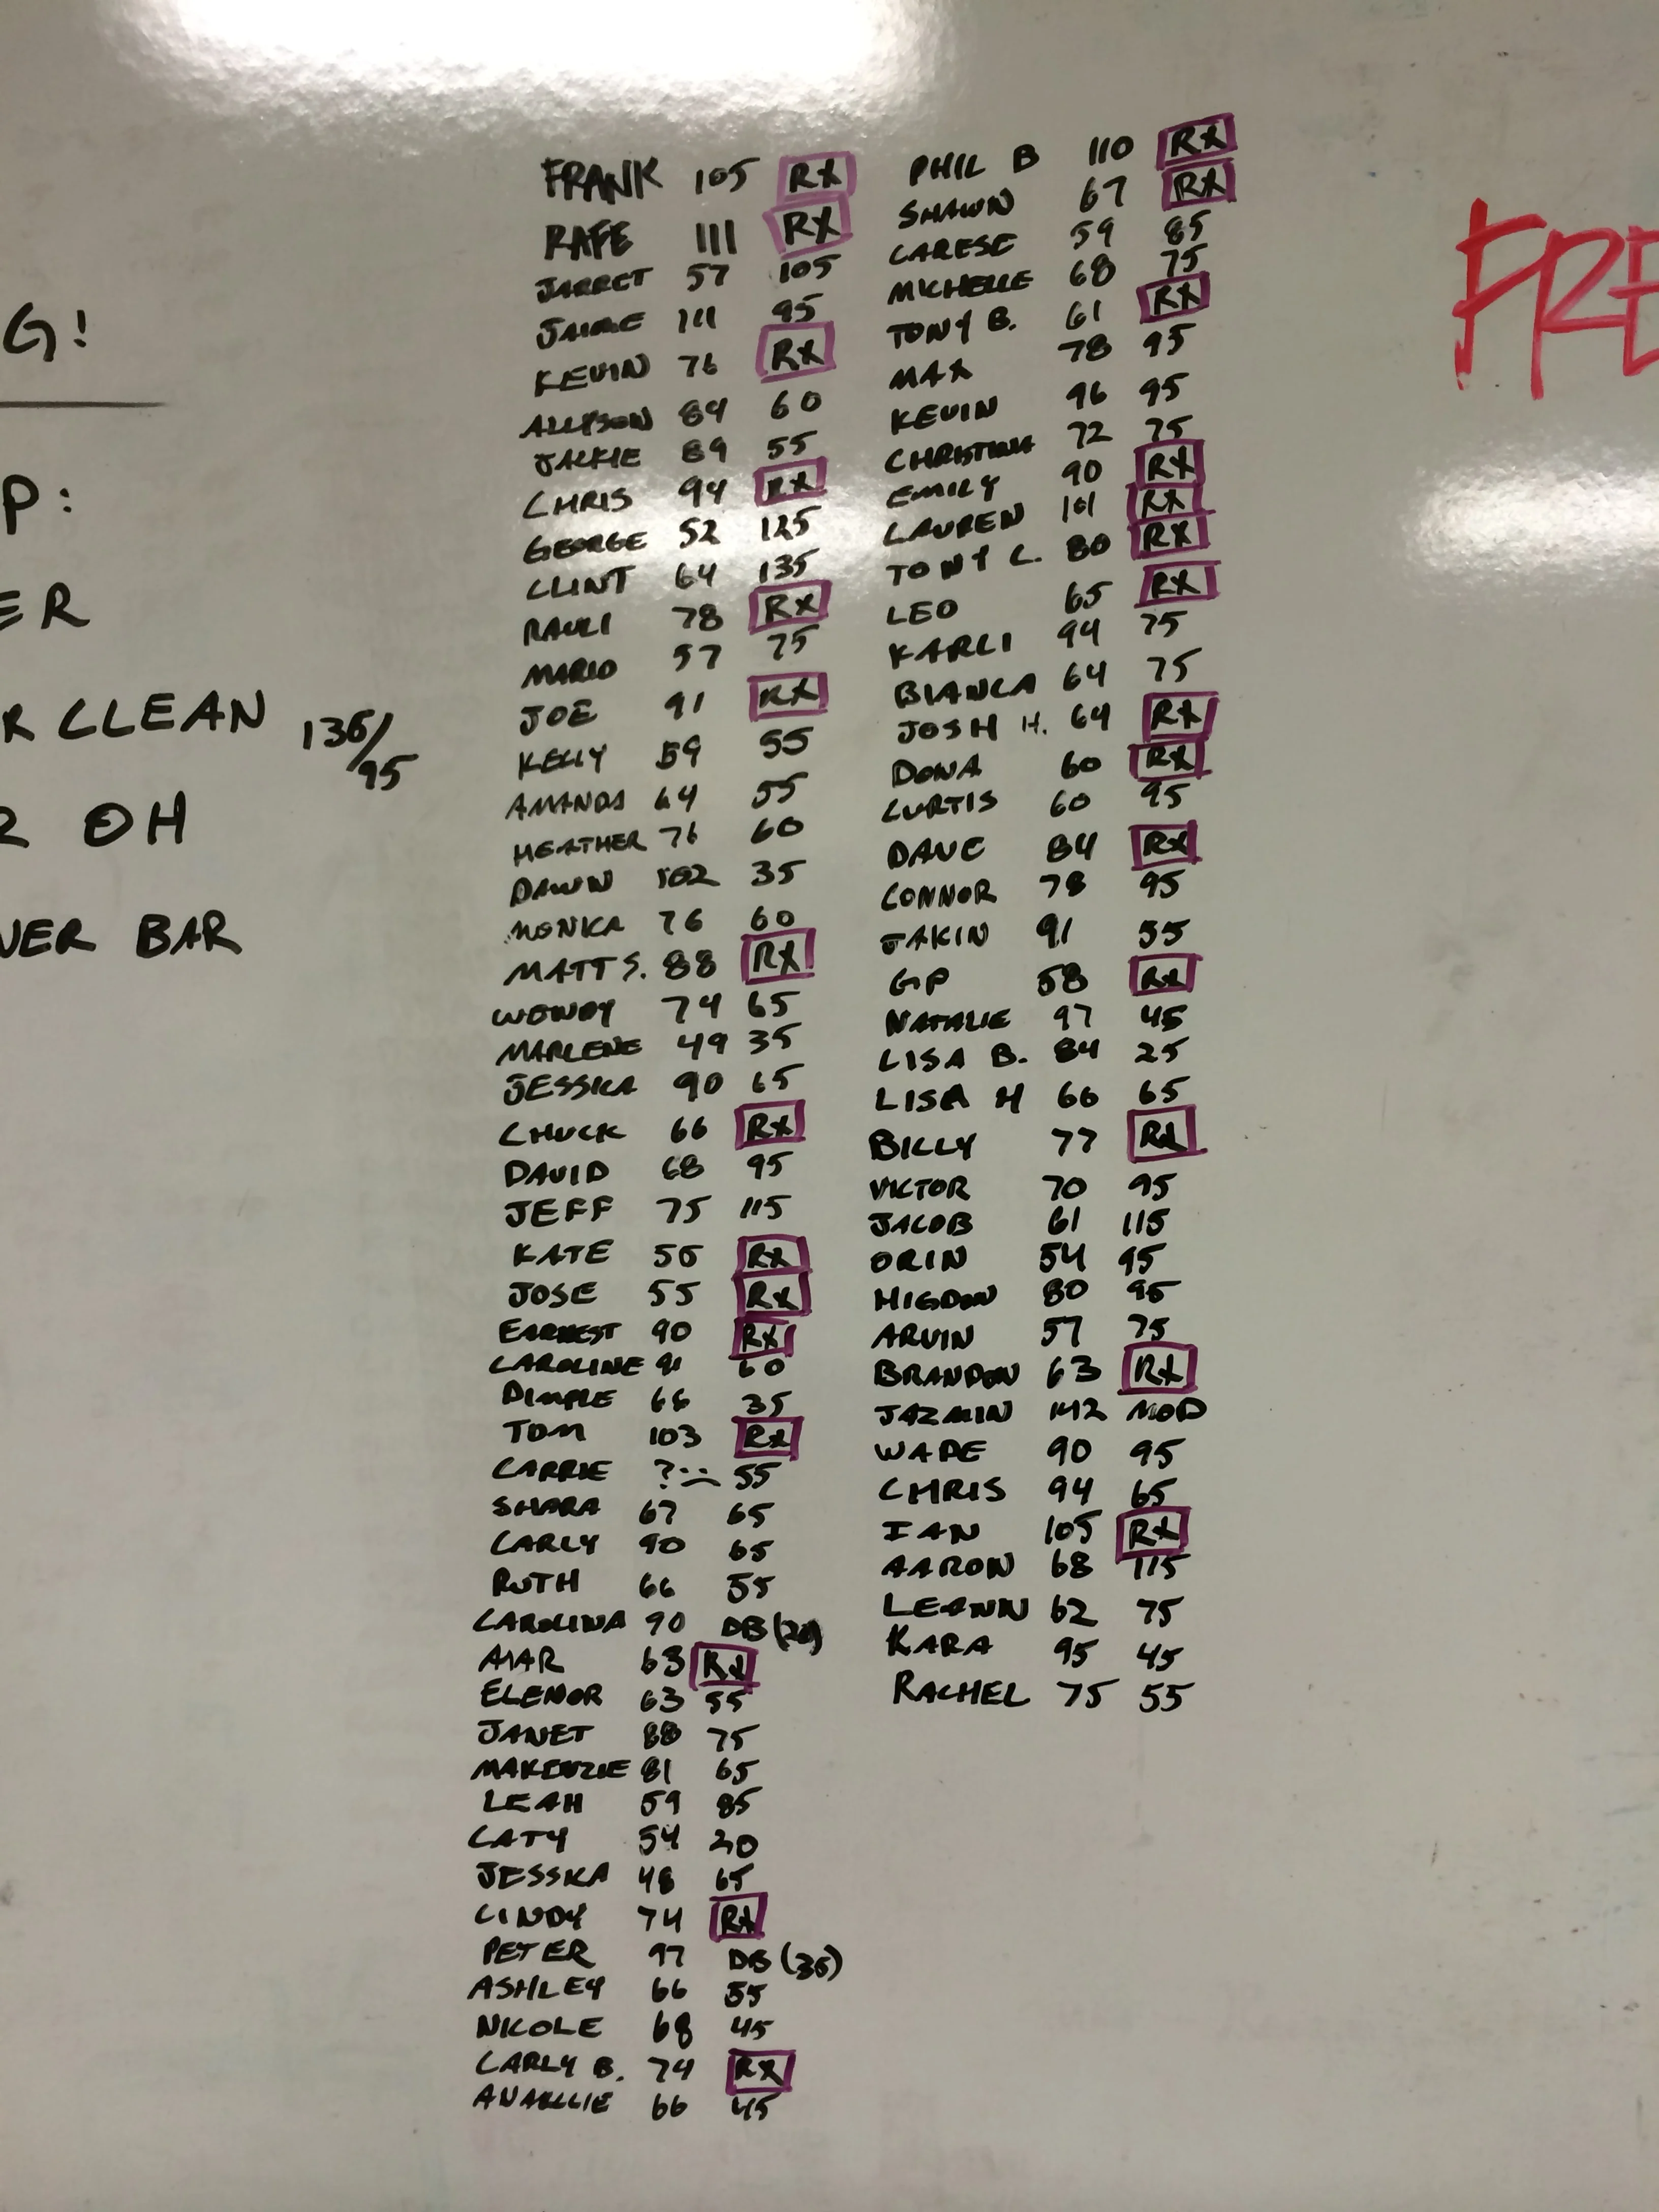 G!
P:
ER
R CLEAN 135/95
R OH
VER BAR
FRANK 105 RX
RAFE 111 RX
JARRET 57 105
JAIME 111 95
KEVIN 76 RX
ALLYSON 84 60
JACKIE 89 55
CHRIS 94 RX
GEORGE 52 125
CLINT 64 135
RAULI 78 RX
MARIO 57 75
JOE 91 RX
KELLY 59 55
AMANDA 64 55
HEATHER 76 60
DAWN 102 35
MONICA 76 60
MATT S. 88 RX
WENDY 74 65
MARLENE 49 35
JESSICA 90 65
CHUCK 66 RX
DAVID 68 95
JEFF 75 115
KATE 56 RX
JOSE 55 RX
EARNEST 90 RX
CAROLINE 91 60
DIMPLE 66 35
TOM 103 RX
CARRIE ? 55
SHARA 67 65
CARLY 90 65
RUTH 66 55
CAROLINA 90 DB (20)
63 RX
ELENOR 63 55
JANET 88 75
MAKENZIE 81 65
LEAH 59 85
CATY 54 20
JESSICA 48 65
CINDY 74 RX
PETER 97 DB (35)
ASHLEY 66 55
NICOLE 68 45
CARLY B. 74 RX
66 45
PHIL B 110 RX
SHAWN 67 RX
CARESE 59 85
MICHELLE 68 75
TONY B. 61 RX
MAX 78 95
KEVIN 96 95
CHRISTINA 72 75
EMILY 90 RX
LAUREN 101 RX
TONY C. 80 RX
LEO 65 RX
KARLI 94 75
BIANCA 64 75
JOSH H. 64 RX
DONA 60 RX
CURTIS 60 95
DAVE 84 RX
CONNOR 78 95
JAKIN 91 55
GP 58 RX
NATALIE 97 45
LISA B. 84 25
LISA H 66 65
BILLY 77 RX
VICTOR 70 95
JACOB 61 115
ORIN 54 95
HIGDON 80 95
ARVIN 57 75
BRANDON 63 RX
JAZMIN 142 MOD
WADE 90 95
CHRIS 94 65
IAN 105 RX
AARON 68 115
LEANN 62 75
KARA 95 45
RACHEL 75 55
FRE